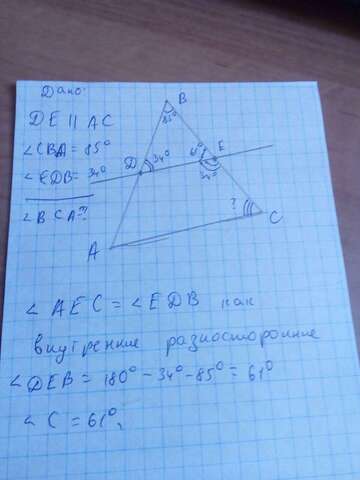 Дано:
DE || AC
∠CBA = 85°
∠EDB = 34°
∠BCA = ?
B
85°
D
34°
61°
E
34°
?
C
A
∠AEC = ∠EDB как
внутренние разносторонние
∠DEB = 180° - 34° - 85° = 61°
∠C = 61°.